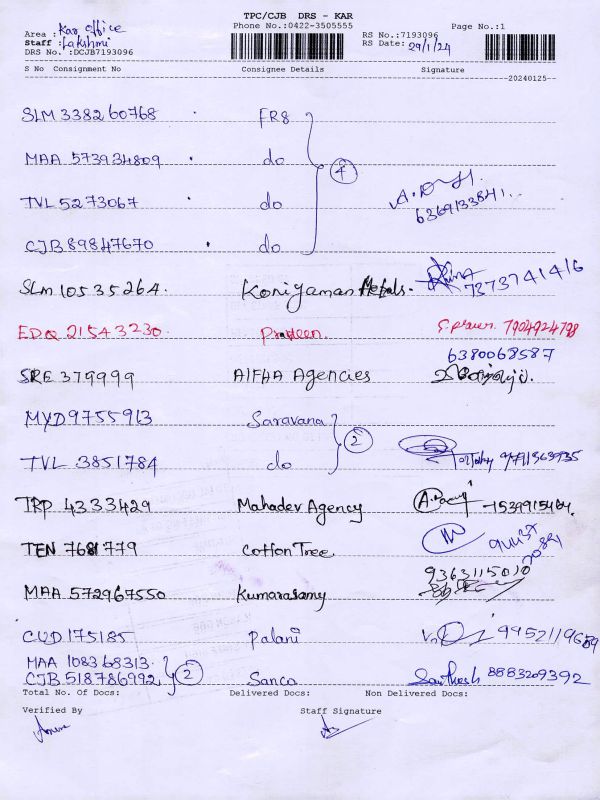 TPC/CJB DRS - KAR
Area : Kar office
Phone No.:0422-3505555
RS No.:7193096
Page No.:1
Staff : Lakshmi
RS Date: 29/1/24
DRS No. :DCJB7193096
S No Consignment No Consignee Details Signature
20240125
SLM 338260768 FR8
MAA 573934809 do
4
TVL 5273067 do
6369133841
CJB 89847670 do
SLM 10535264. Koniyaman Metals. 7373741416
EDQ 21543230. Praveen. 7904924798
6380068587
SRE 379999 AlFHA Agencies
MYD 9755913 Saravana
2
TVL 3851784 do
TRP 4333429 Mahadev Agency
TEN 7681779 Cotton Tree
9363115010
MAA 572967550 Kumarasamy
CUD 175185 Palani
MAA 108368313.
CJB 518786992 2 Sanca Santhosh 8883209392
Total No. Of Docs: Delivered Docs: Non Delivered Docs:
Verified By Staff Signature